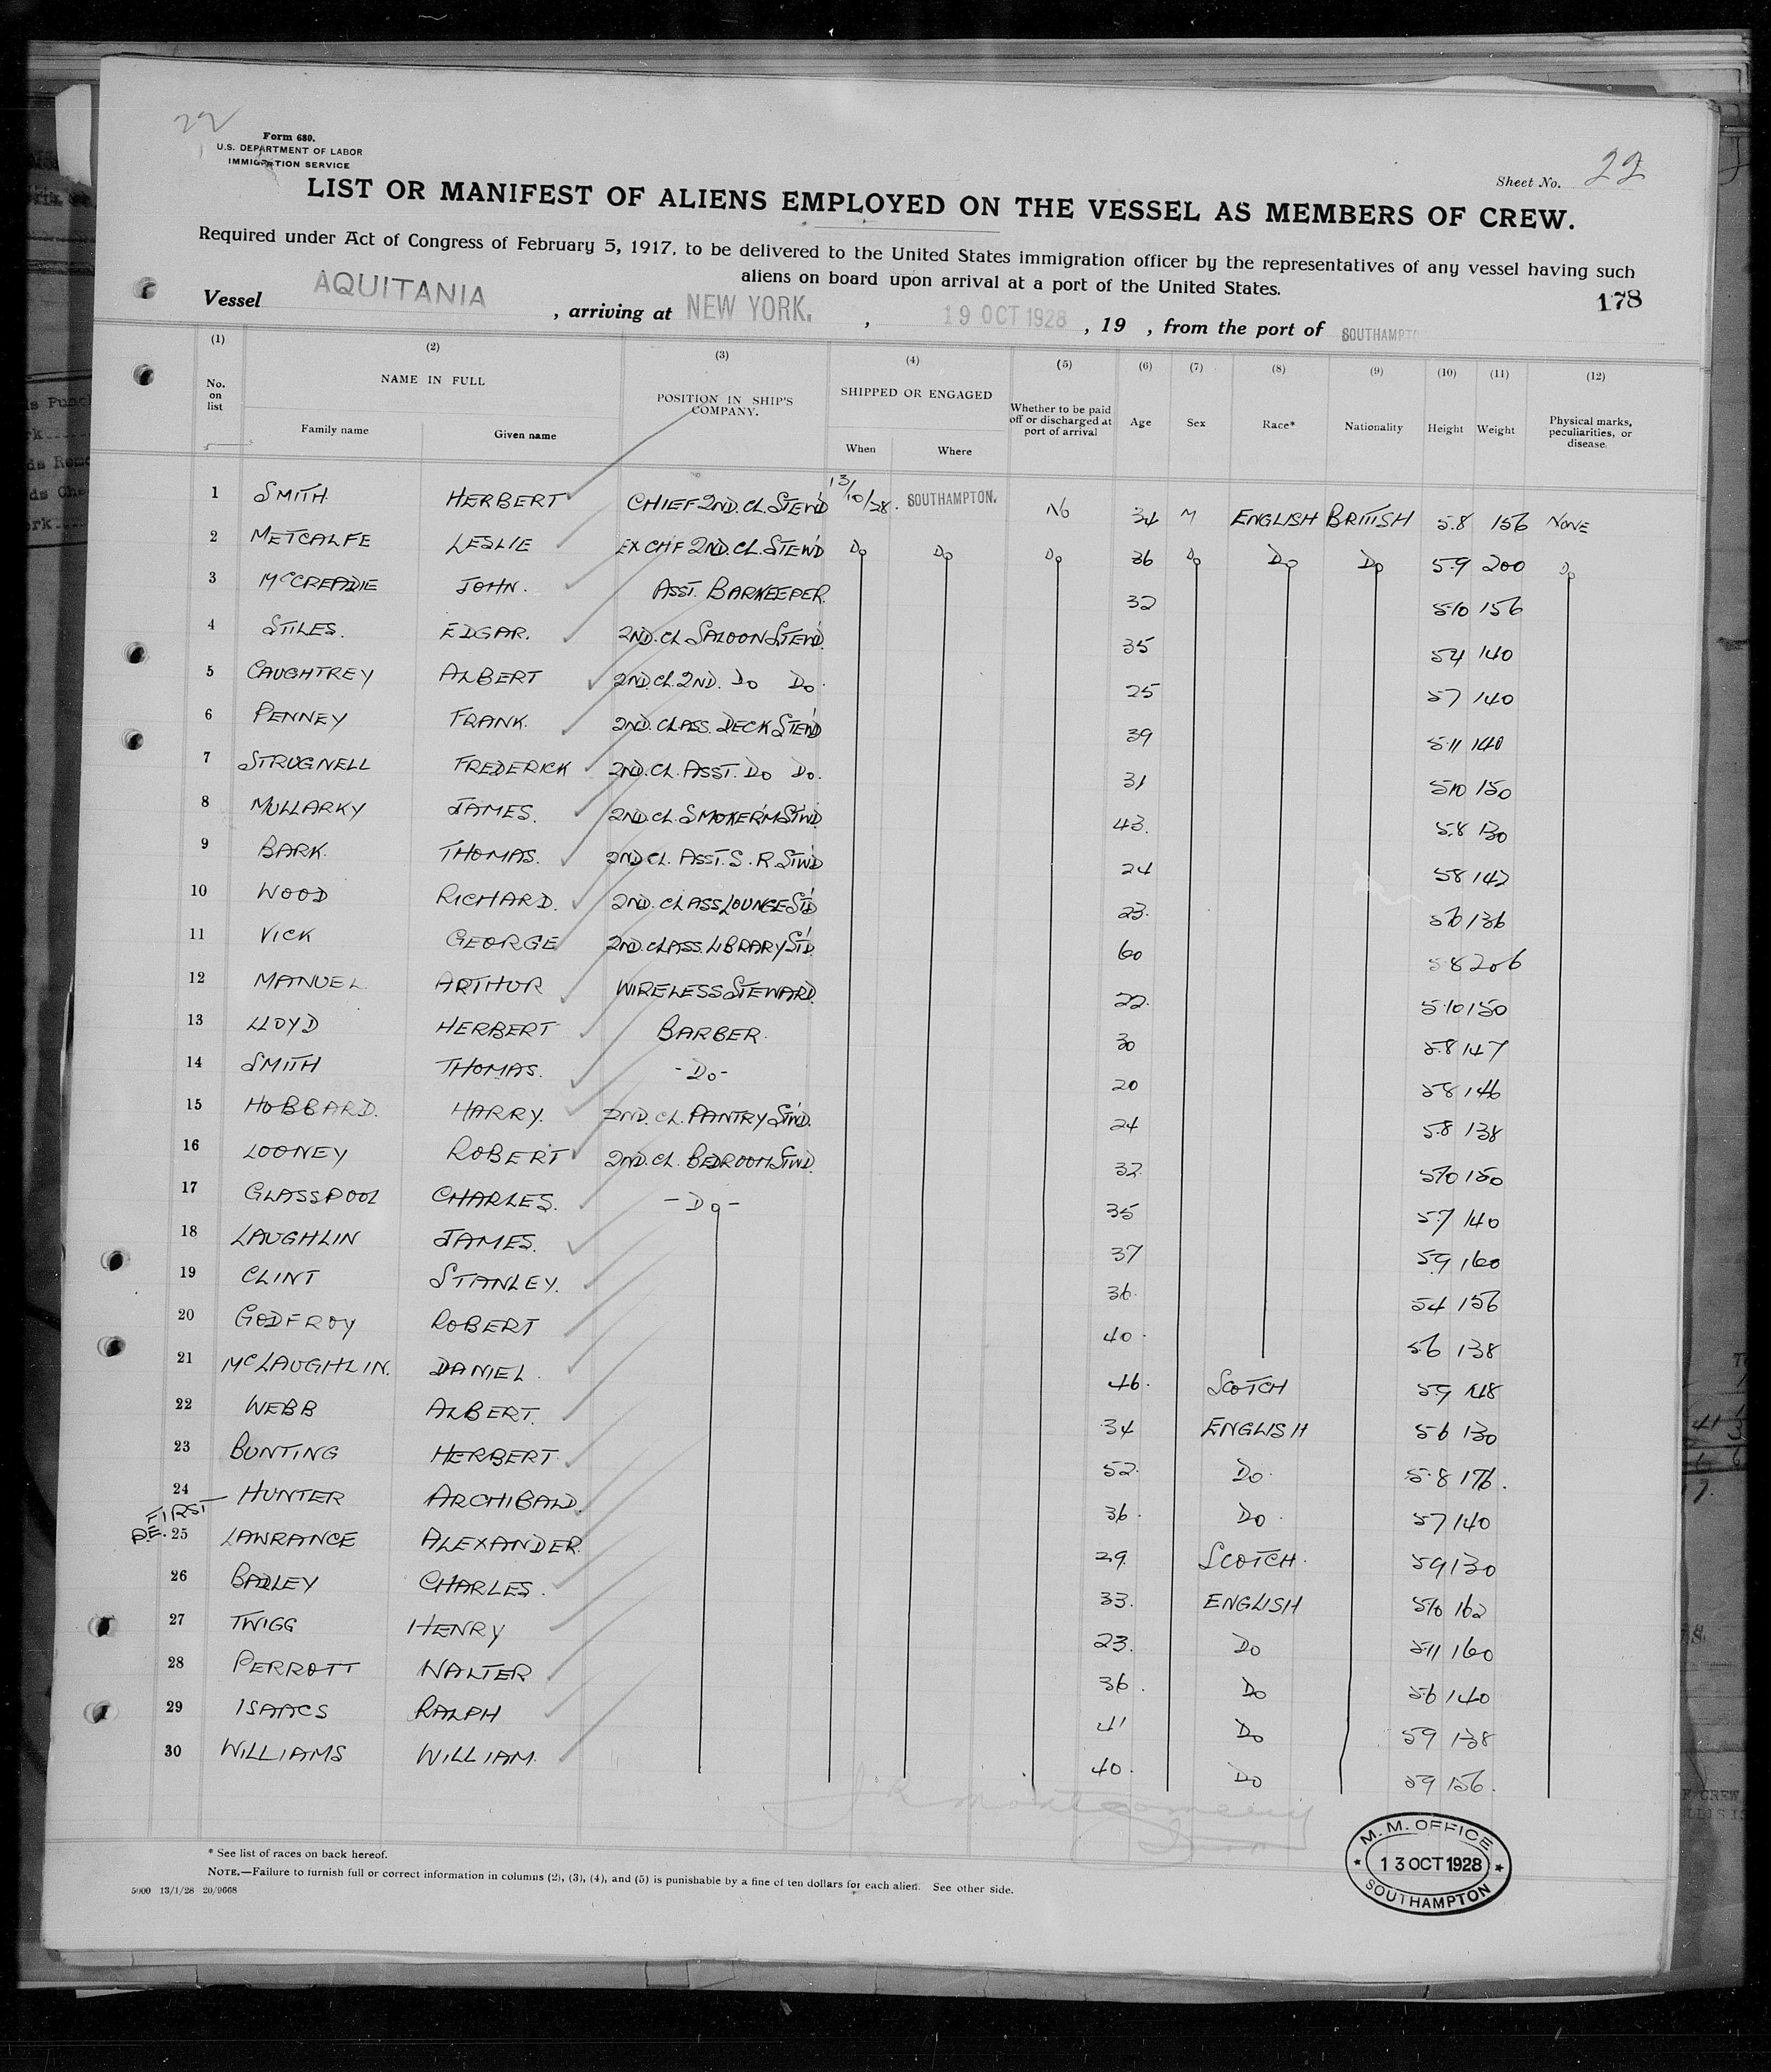 22
Form 680.
U.S. DEPARTMENT OF LABOR
IMMIGRATION SERVICE
Sheet No. 22
LIST OR MANIFEST OF ALIENS EMPLOYED ON THE VESSEL AS MEMBERS OF CREW.
Required under Act of Congress of February 5, 1917, to be delivered to the United States immigration officer by the representatives of any vessel having such
aliens on board upon arrival at a port of the United States.
178
Vessel AQUITANIA, arriving at NEW YORK., 19 OCT 1928, 19 , from the port of SOUTHAMPTO
(1) (2) (3) (4) (5) (6) (7) (8) (9) (10) (11) (12)
No. on list NAME IN FULL POSITION IN SHIP'S COMPANY. SHIPPED OR ENGAGED Whether to be paid off or discharged at port of arrival Age Sex Race* Nationality Height Weight Physical marks, peculiarities, or disease.
Family name Given name When Where
1 SMITH HERBERT CHIEF 2ND. CL. STEW'D 13/10/28. SOUTHAMPTON. No 34 M ENGLISH BRITISH 5.8 156 NONE
2 METCALFE LESLIE EX CHF 2ND. CL. STEW'D Do Do Do 36 Do Do Do 5.9 200 Do
3 McCREADIE JOHN. ASST. BARKEEPER. 32 5.10 156
4 STILES. EDGAR. 2ND. CL SALOON STEW'D. 35 5.4 140
5 CAUGHTREY ALBERT 2ND. CL. 2ND. Do Do. 25 5.7 140
6 PENNEY FRANK. 2ND. CLASS. DECK STEW'D 39 5.11 140
7 STRUGNELL FREDERICK 2ND. CL. ASST. Do Do. 31 5.10 150
8 MULLARKY JAMES. 2ND. CL. SMOKE R'M STW'D. 43. 5.8 130
9 BARK. THOMAS. 2ND CL. ASST. S. R. STW'D 24 5.8 142
10 WOOD RICHARD. 2ND. CLASS LOUNGE ST'D 23. 5.6 136
11 VICK GEORGE 2ND. CLASS. LIBRARY ST'D. 60 5.8 206
12 MANUEL. ARTHUR WIRELESS STEWARD. 22. 5.10 150
13 LLOYD HERBERT BARBER. 30 5.8 147
14 SMITH THOMAS. - Do - 20 5.8 146
15 HOBBARD. HARRY. 2ND. CL. PANTRY STW'D. 24 5.8 138
16 LOONEY ROBERT 2ND. CL. BEDROOM STW'D. 32. 5.10 150
17 GLASSPOOL CHARLES. - Do - 35 5.7 140
18 LAUGHLIN JAMES. 37 5.9 160
19 CLINT STANLEY. 36. 5.4 156
20 GODFROY ROBERT 40. 5.6 138
21 McLAUGHLIN. DANIEL. 46. SCOTCH 5.9 148
22 WEBB ALBERT. 34 ENGLISH 5.6 130
23 BUNTING HERBERT. 52. Do. 5.8 176.
24 HUNTER ARCHIBALD. 36. Do. 5.7 140
FIRST
25 LAWRANCE ALEXANDER. 29. SCOTCH. 5.9 130
26 BAILEY CHARLES. 33. ENGLISH 5.10 162
27 TWIGG HENRY 23. Do 5.11 160
28 PERROTT WALTER 36. Do 5.6 140
29 ISAACS RALPH 41 Do 5.9 138
30 WILLIAMS WILLIAM. 40. Do 5.9 156.
* See list of races on back hereof.
NOTE.—Failure to furnish full or correct information in columns (2), (3), (4), and (5) is punishable by a fine of ten dollars for each alien. See other side.
5000 13/1/28 20/9668
M. M. OFFICE
13 OCT 1928
SOUTHAMPTON